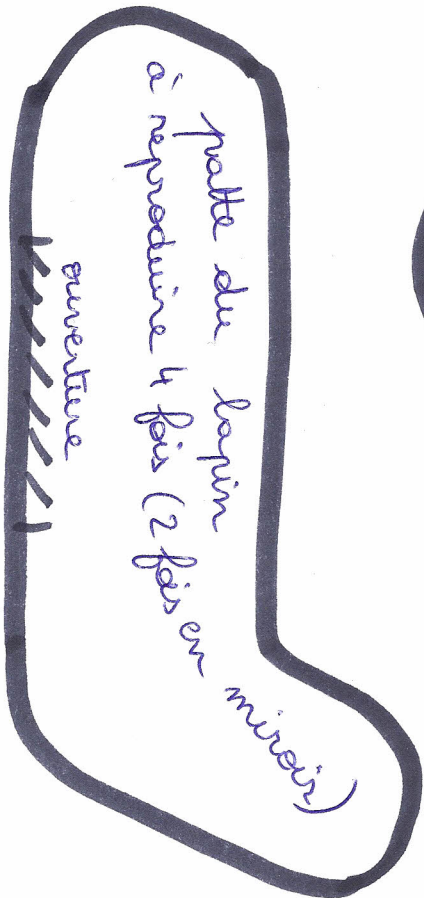 patte du lapin
à reproduire 4 fois (2 fois en miroir)
ouverture